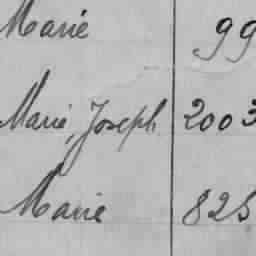 Marie 99
Marie, Joseph 2003
Marie 825